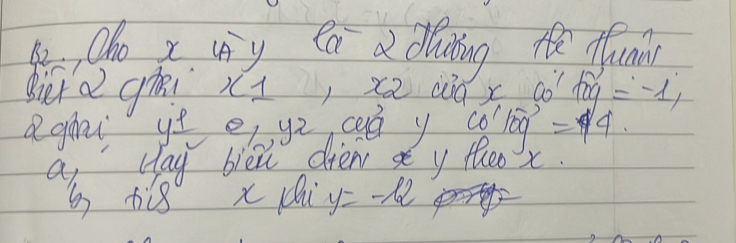 B2., Cho x và y là 2 đl tỉ lệ thuận
Biết 2 giá trị x1, x2 của x có tổng = -1,
2 giá trị y1, y2 của y có tổng = 4.
a, Hãy biểu diễn y theo x.
b, x khi y = -12